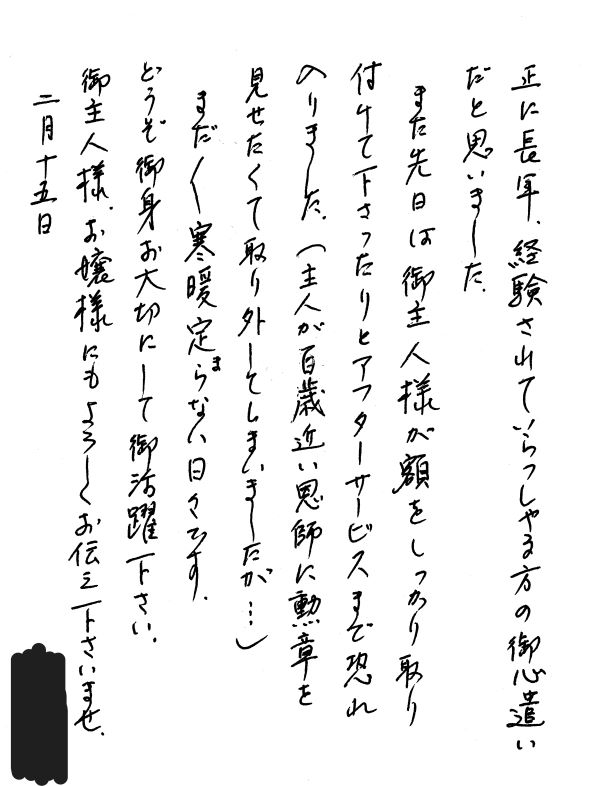 正に長年、経験されていらっしゃる方の御心遣い
だと思いました。
また先日は御主人様が額をしっかり取り
付けて下さったりとアフターサービスまで恐れ
入りました。(主人が百歳近い恩師に勲章を
見せたくて取り外してしまいましたが…)
まだ〱寒暖定まらない日々です。
どうぞ御身お大切にして御活躍下さい。
御主人様、お嬢様にもよろしくお伝え下さいませ。
二月十五日